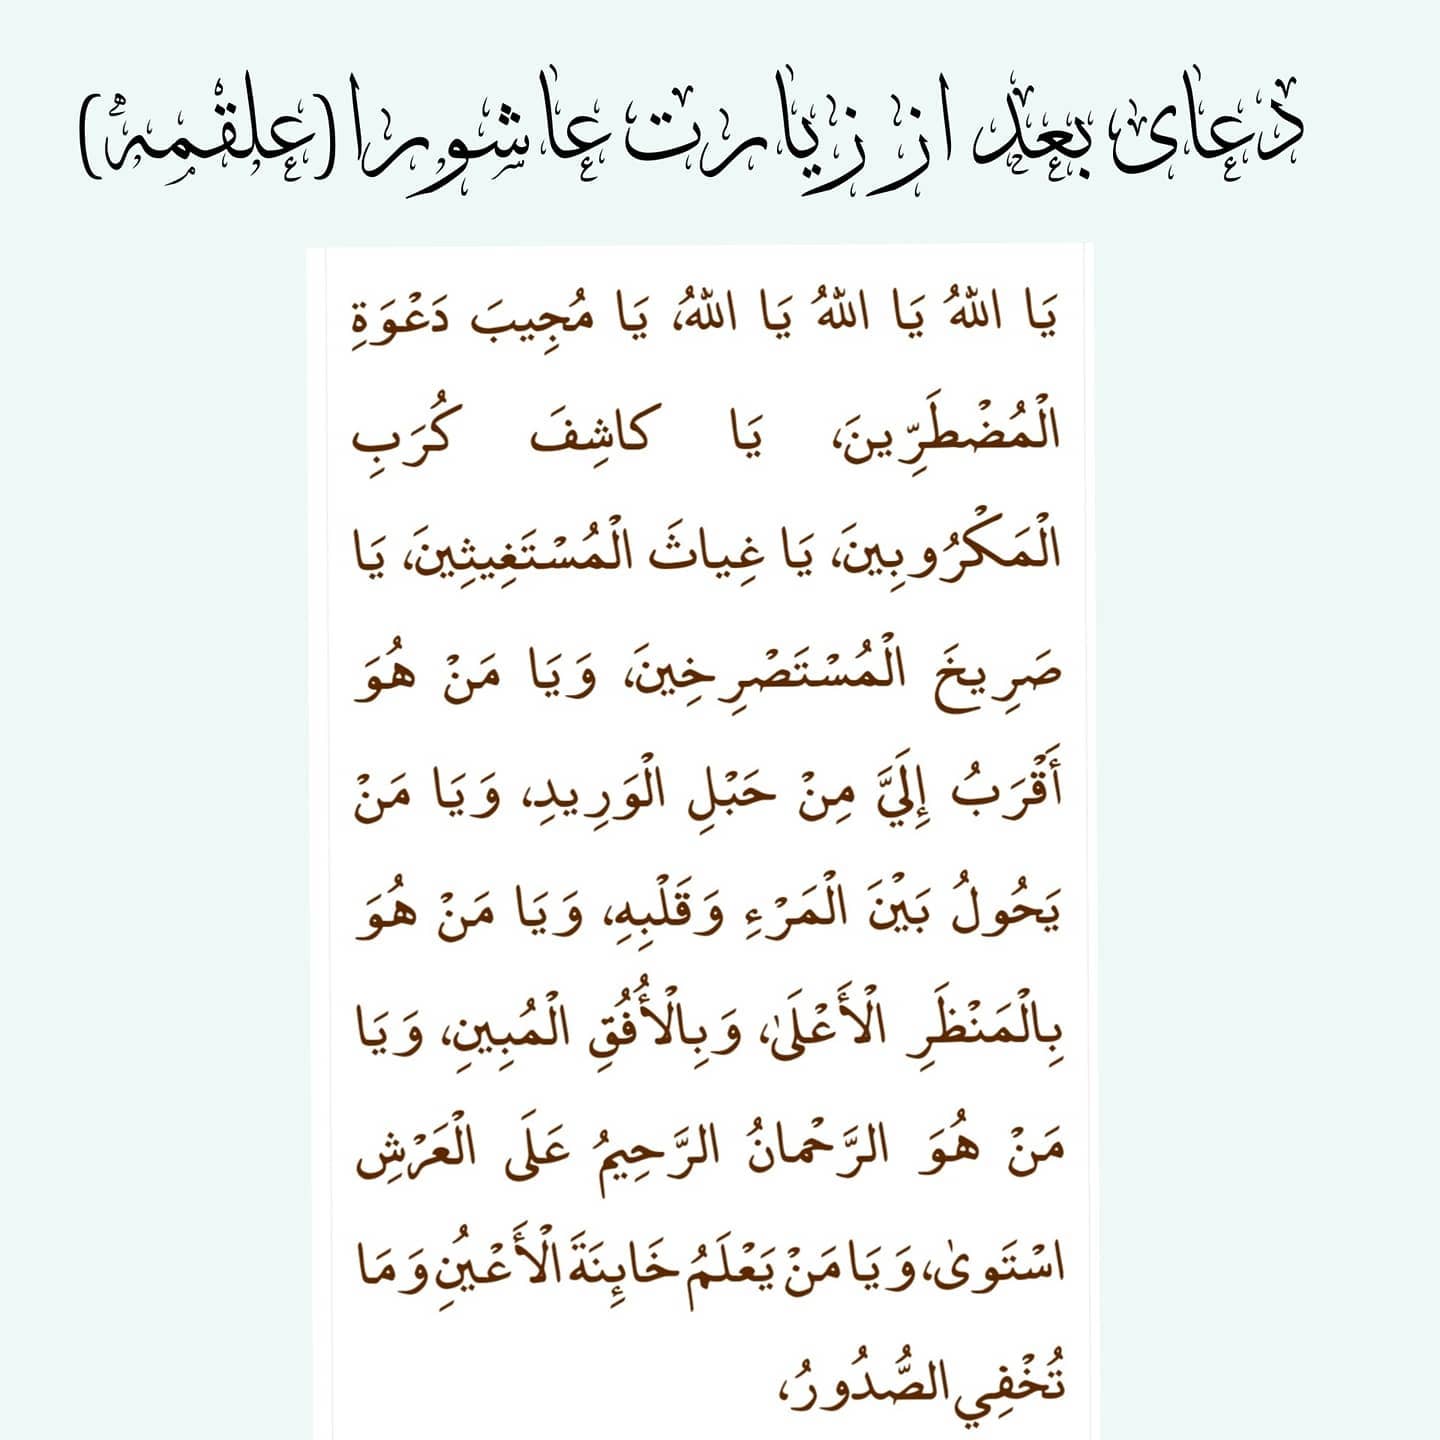 دعای بعد از زیارت عاشورا (علقمه)
يَا اللهُ يَا اللهُ يَا اللهُ، يَا مُجِيبَ دَعْوَةِ
الْمُضْطَرِّينَ، يَا كاشِفَ كُرَبِ
الْمَكْرُوبِينَ، يَا غِياثَ الْمُسْتَغِيثِينَ، يَا
صَرِيخَ الْمُسْتَصْرِخِينَ، وَيَا مَنْ هُوَ
أَقْرَبُ إِلَيَّ مِنْ حَبْلِ الْوَرِيدِ، وَيَا مَنْ
يَحُولُ بَيْنَ الْمَرْءِ وَقَلْبِهِ، وَيَا مَنْ هُوَ
بِالْمَنْظَرِ الْأَعْلَىٰ، وَبِالْأُفُقِ الْمُبِينِ، وَيَا
مَنْ هُوَ الرَّحْمانُ الرَّحِيمُ عَلَى الْعَرْشِ
اسْتَوىٰ، وَيَا مَنْ يَعْلَمُ خَايِٕنَةَ الْأَعْيُنِ وَمَا
تُخْفِي الصُّدُورُ،